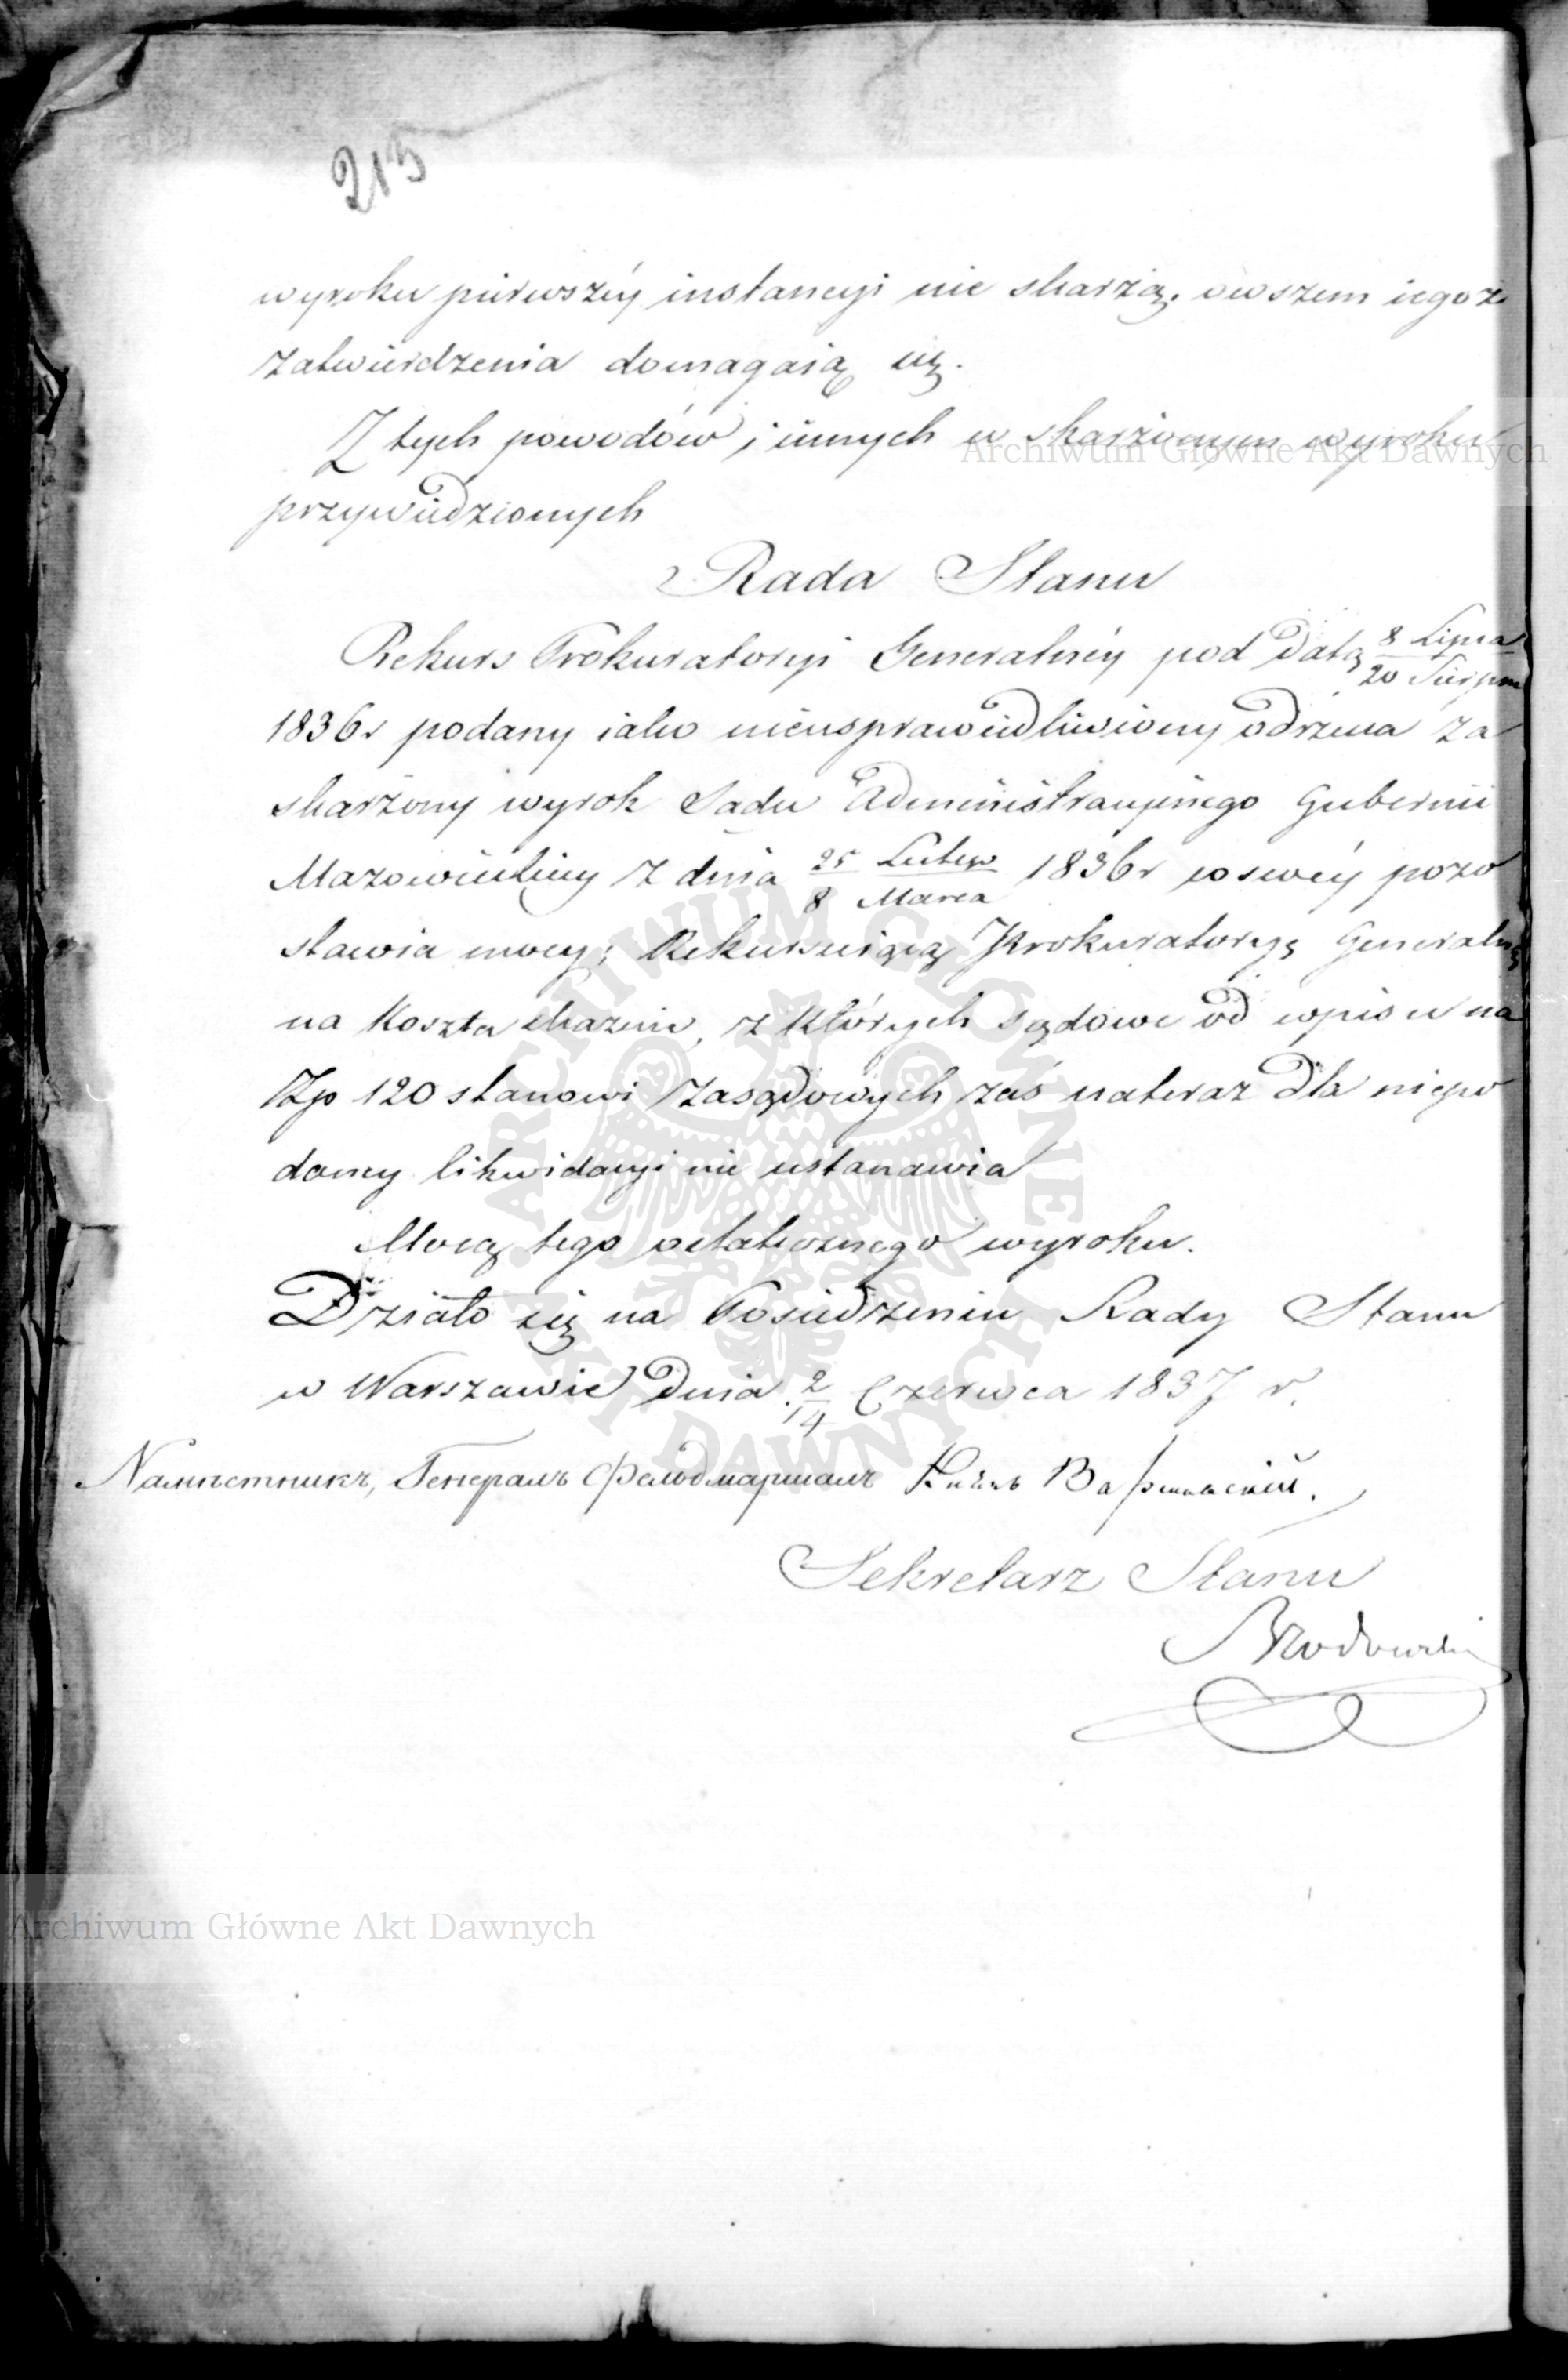 213
wyroku pierwszéy instancyi nie skarżą, owszem iegoż
zatwierdzenia domagaią się.
Z tych powodów i innych w skarżonym wyroku
przywiedzionych
Rada Stanu
Rekurs Prokuratoryi Generalnéy pod datą 8 Lipca / 20 Sierpn
1836 r podany iako nieusprawiedliwiony odrzuca za
skarżony wyrok Sądu Administracyinego Gubernii
Mazowieckiey z dnia 25 Lutego / 8 Marca 1836 r w swéy pozo
stawia mocy; Rekursuiącą Prokuratoryę Generalną
na koszta skazuie, z których sądowe od wpisu na
Złp 120 stanowi zasądowych zaś na teraz dla niepo
daney likwidacyi nie ustanawia
Mocą tego ostatecznego wyroku.
Działo się na Posiedzeniu Rady Stanu
w Warszawie Dnia 2/14 Czerwca 1837 r.
Намѣстникъ, Генералъ Фельдмаршалъ Князь Варшавскій.
Sekretarz Stanu
Brodowski
Archiwum Główne Akt Dawnych
Archiwum Główne Akt Dawnych
ARCHIWUM GŁÓWNE AKT DAWNYCH